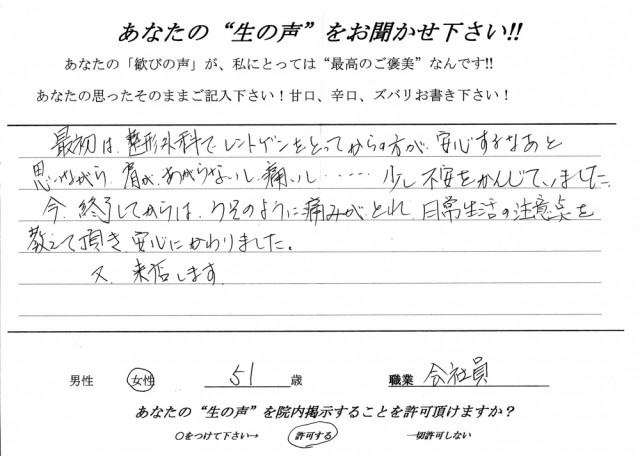 あなたの“生の声”をお聞かせ下さい!!
あなたの「歓びの声」が、私にとっては“最高のご褒美”なんです!!
あなたの思ったそのままご記入下さい！甘口、辛口、ズバリお書き下さい！
最初は、整形外科で、レントゲンをとってからの方が、安心するなあと
思いながら、肩が、あがらないし、痛いし・・・・・少し不安をかんじていました。
今、終了してからは、ウソのように痛みがとれ、日常生活の注意点を
教えて頂き、安心にかわりました。
又、来店します。
男性 女性 51 歳 職業 会社員
あなたの“生の声”を院内掲示することを許可頂けますか？
〇をつけて下さい→ 許可する 一切許可しない